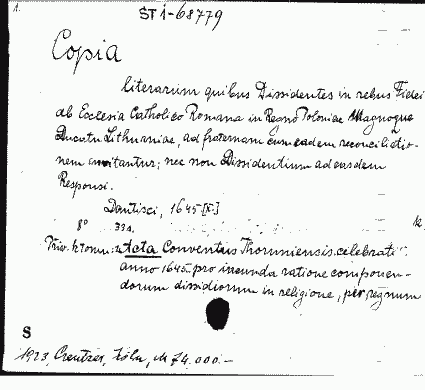 1.
ST 1-68779
Copia
literarum quibus Dissidentes in rebus Fidei
ab Ecclesia Catholico Romana in Regno Poloniae Magnoque
Ducatu Lithuaniae, ad fraternam cum eadem reconciliatio-
nem invitantur; nec non Dissidentium ad easdem
Responsi.
Dantisci, 1645
8° 33 s.
Acta Conventus Thoruniensis celebrati
anno 1645 pro ineunda ratione componen-
dorum dissidiorum in religione, per regnum
S
1923, Creutzer, Köln, M 74.000.—